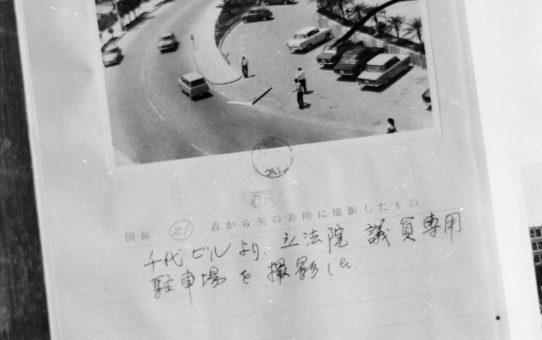 図面 21 点から矢の方向に撮影したもの
千代ビルより、立法院 議員専用
駐車場を撮影した